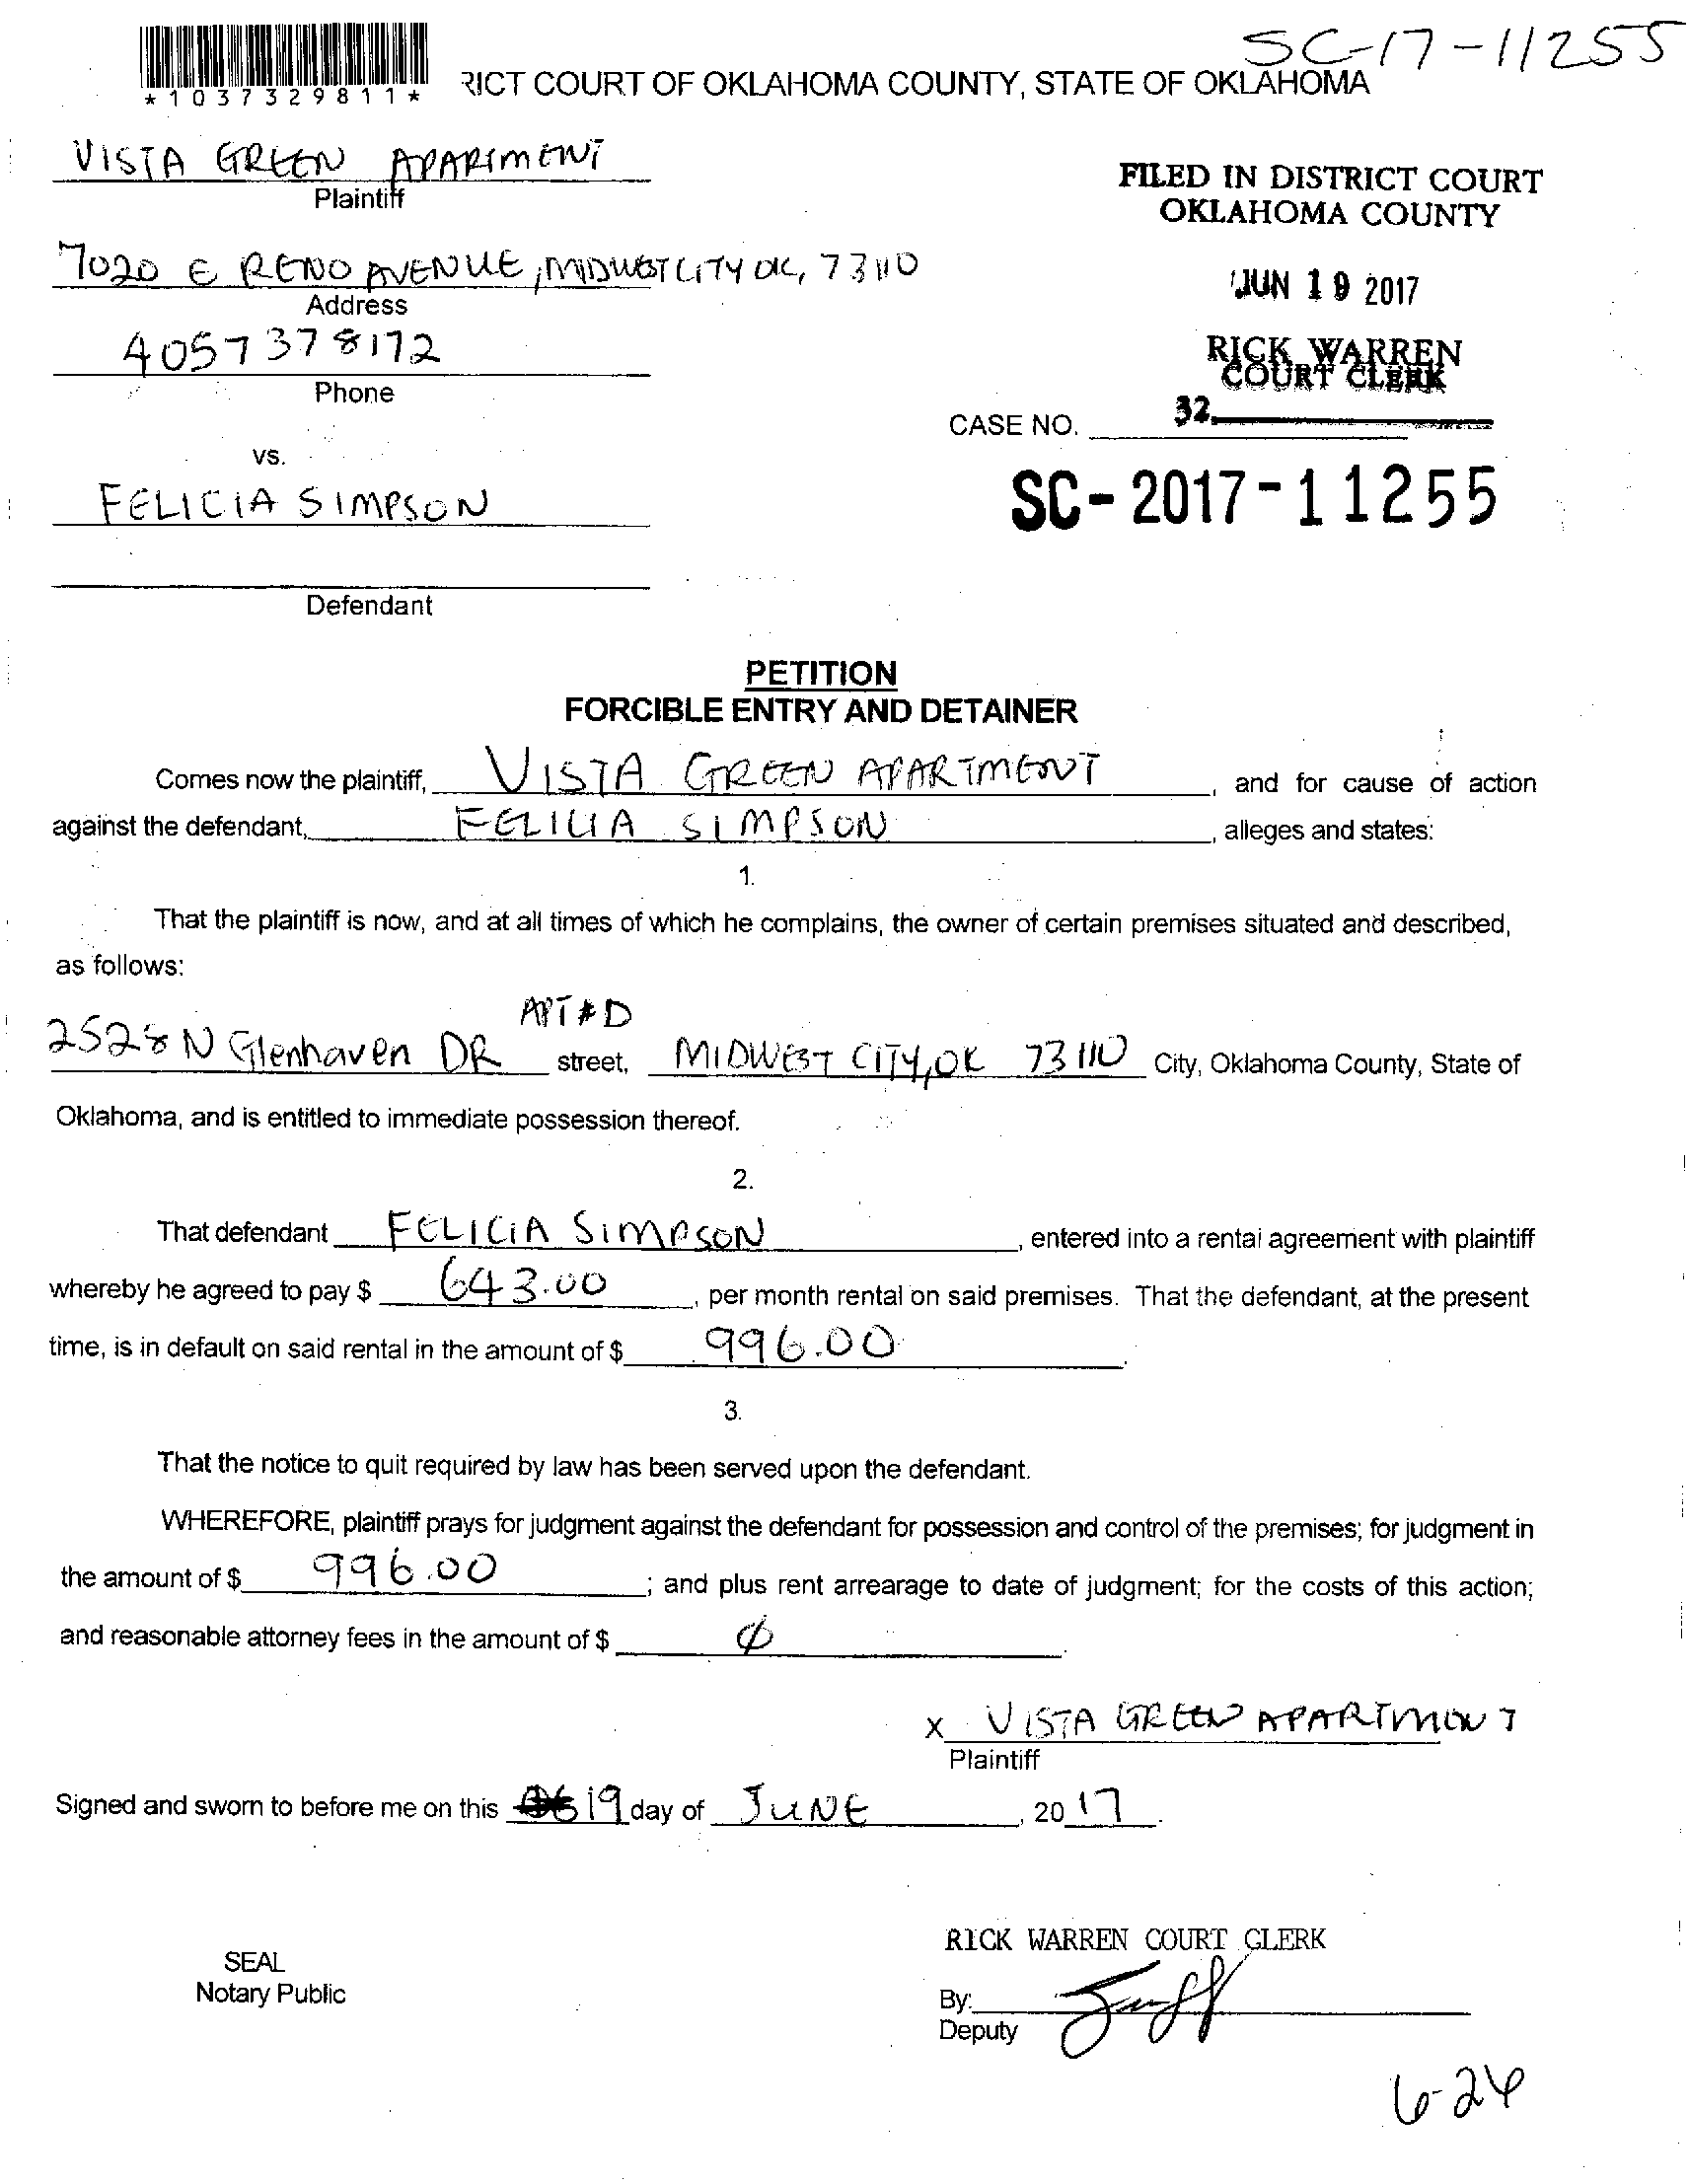 SC-17-11255
*1037329811*
RICT COURT OF OKLAHOMA COUNTY, STATE OF OKLAHOMA
VISTA GREEN APARTMENT
Plaintiff
FILED IN DISTRICT COURT
OKLAHOMA COUNTY
7020 E RENO AVENUE, MIDWEST CITY OK, 73110
Address
JUN 19 2017
4057378172
Phone
RICK WARREN
COURT CLERK
CASE NO.
32
vs.
FELICIA SIMPSON
SC-2017-11255
Defendant
PETITION
FORCIBLE ENTRY AND DETAINER
Comes now the plaintiff, VISTA GREEN APARTMENT, and for cause of action
against the defendant, FELICIA SIMPSON, alleges and states:
1.
That the plaintiff is now, and at all times of which he complains, the owner of certain premises situated and described,
as follows:
APT #D
2528 N Glenhaven DR street, MIDWEST CITY, OK 73110 City, Oklahoma County, State of
Oklahoma, and is entitled to immediate possession thereof.
2.
That defendant FELICIA SIMPSON, entered into a rental agreement with plaintiff
whereby he agreed to pay $ 643.00, per month rental on said premises. That the defendant, at the present
time, is in default on said rental in the amount of $ 996.00.
3.
That the notice to quit required by law has been served upon the defendant.
WHEREFORE, plaintiff prays for judgment against the defendant for possession and control of the premises; for judgment in
the amount of $ 996.00; and plus rent arrearage to date of judgment; for the costs of this action;
and reasonable attorney fees in the amount of $ ∅
x VISTA GREEN APARTMENT
Plaintiff
Signed and sworn to before me on this 19 day of JUNE, 2017.
RICK WARREN COURT CLERK
SEAL
Notary Public
By:
Deputy
6-26